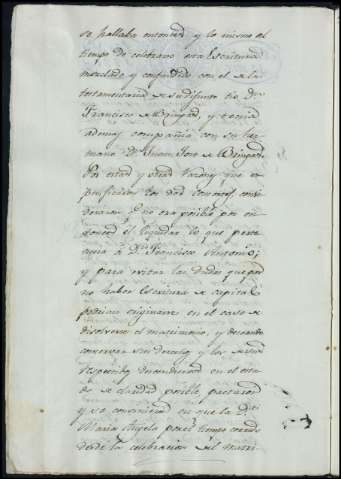 se hallaba entonces y lo mismo al
tiempo de celebrarse esta Escritura
mezclado y confundido con el de la
testamentaria de su difunto tio Dn
Francisco de Bringas, y tenia
ademas compañia con su her-
mano Dn Juan Jose de Bringas.
Por estas y otras razones que
los dos consortes consi-
deraron que no era posible por en-
tonces el liquidar lo que perte-
necia á Dn Francisco Antonio;
y para evitar las dudas que por
no haber Escritura de capital
podrian originarse en el caso de
disolverse el matrimonio, y deseando
conservar sus derechos y los de sus
respectivos descendientes en el esta-
do de claridad posible, pactaron
y se convinieron en que la Dña
Maria Angela por el tiempo corrido
desde la celebracion del matri-